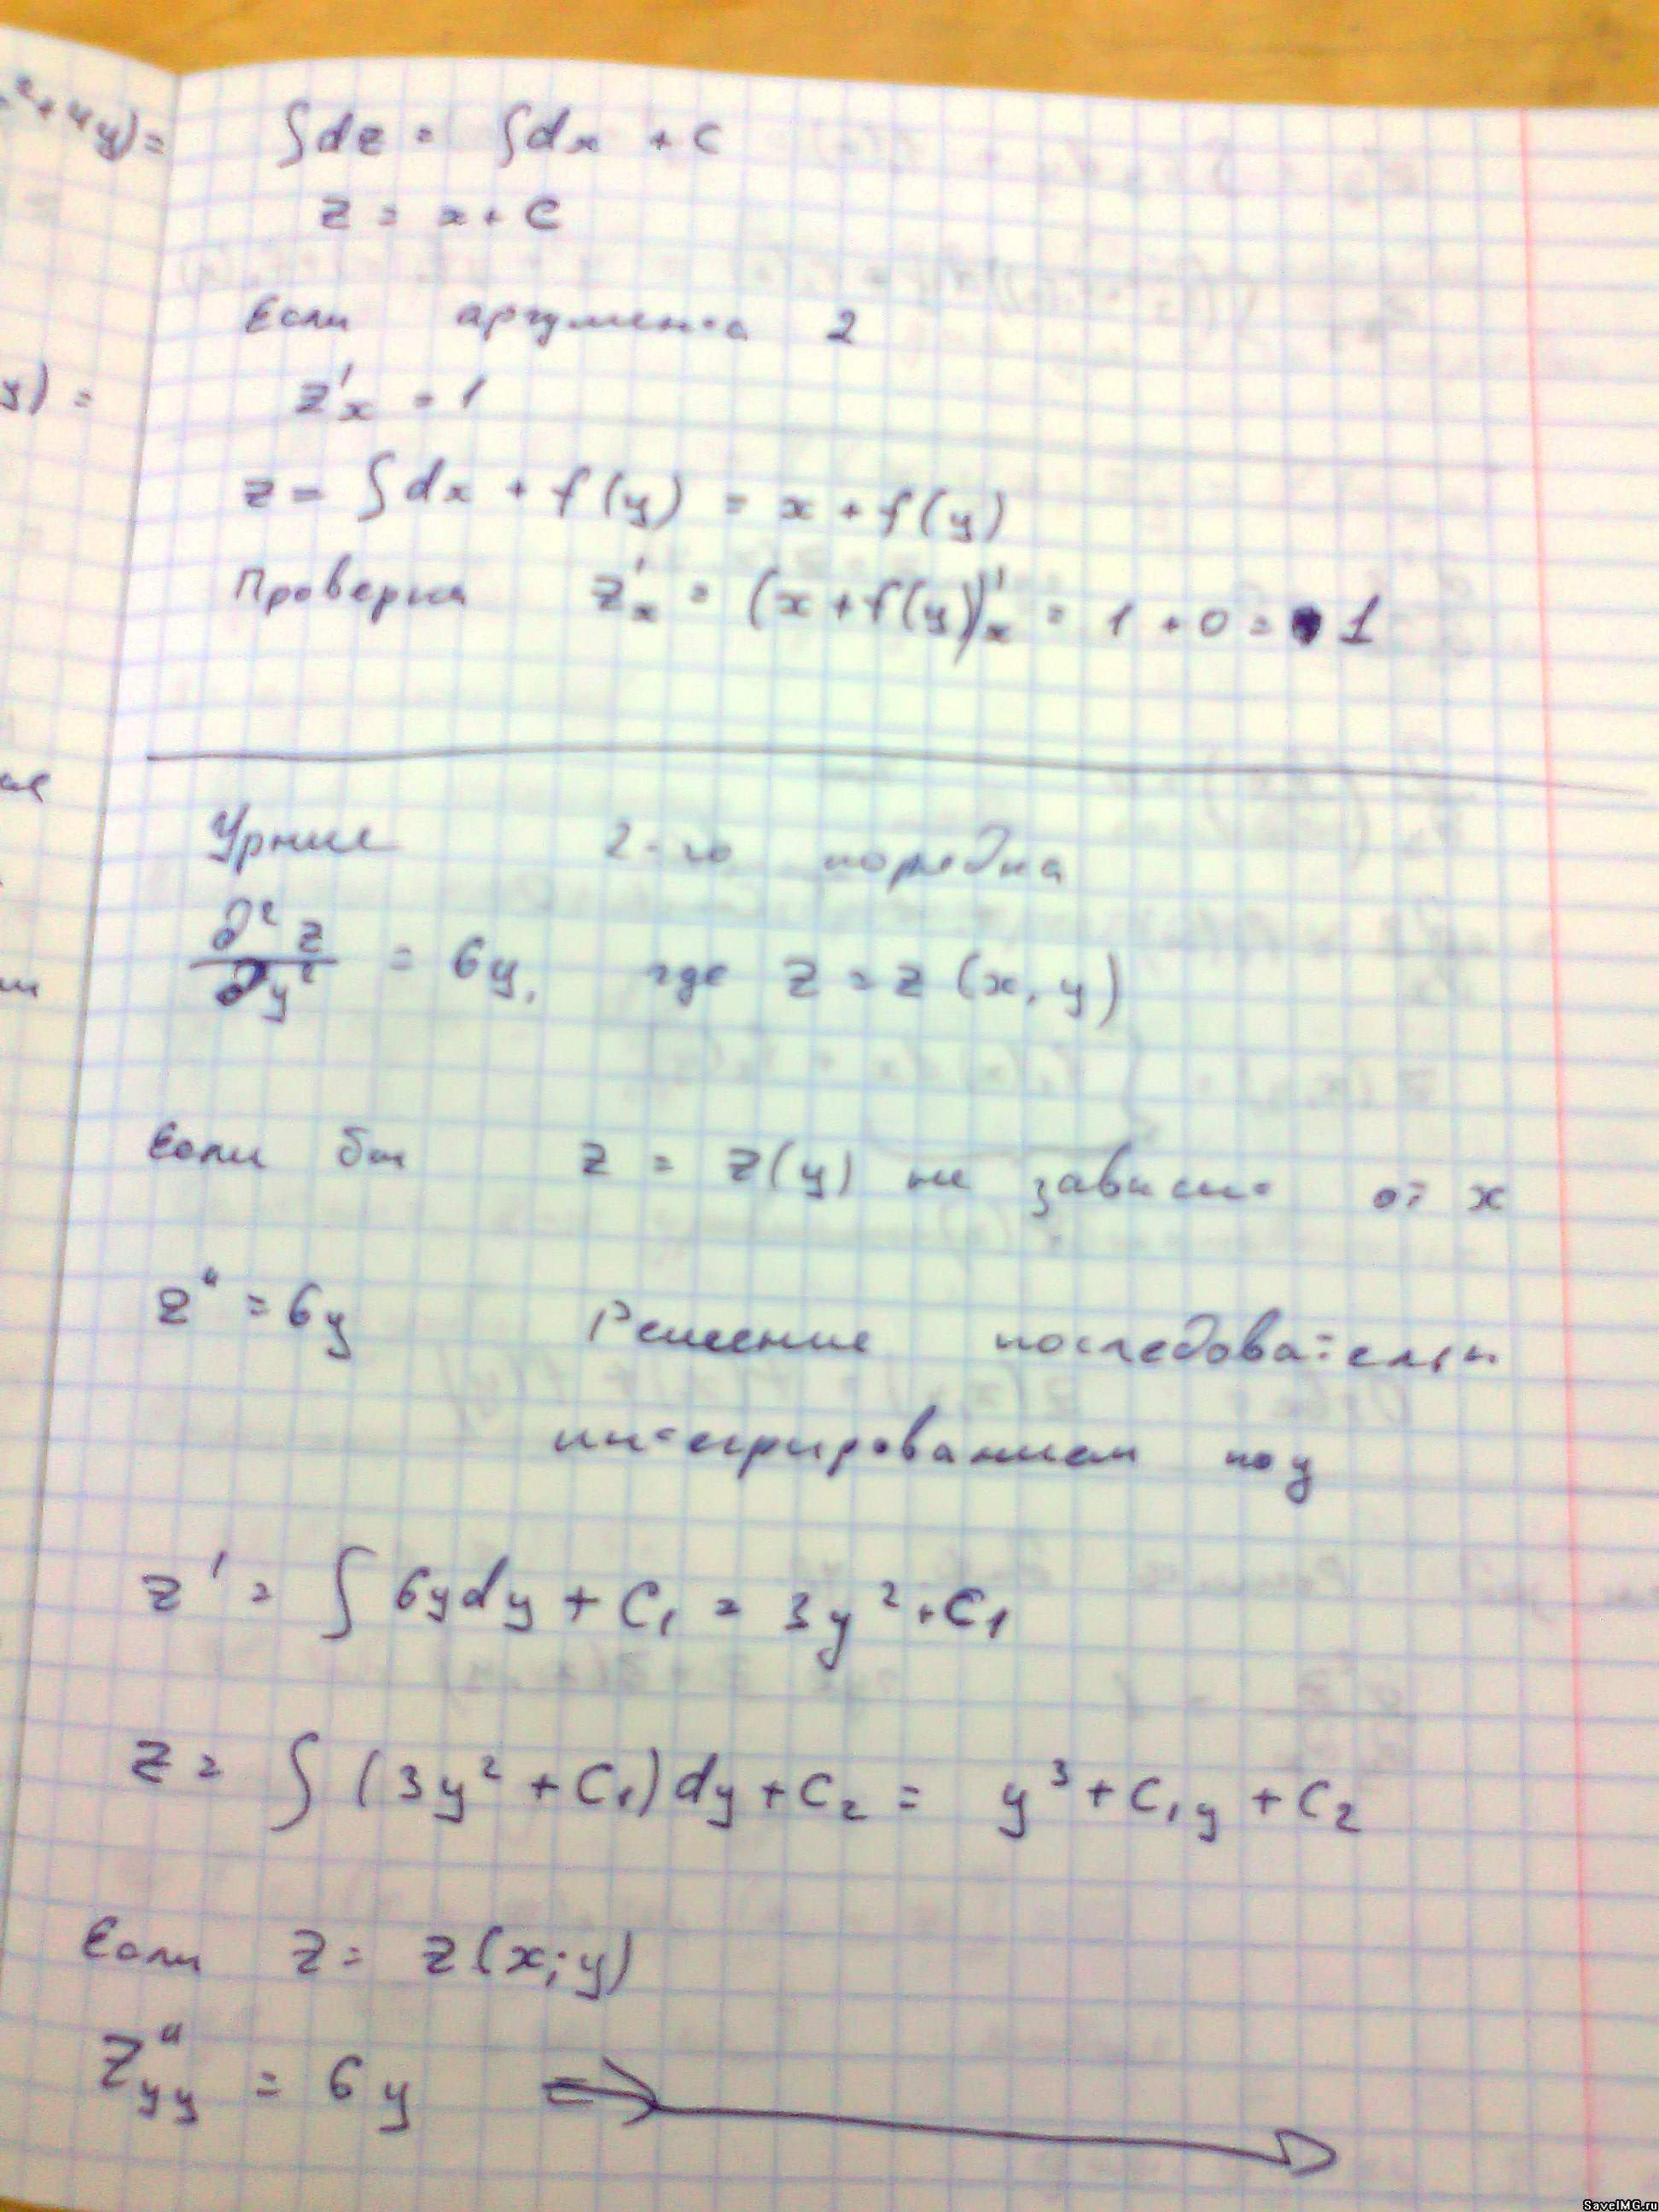 ²+4y)=
∫dz = ∫dx + C
z = x + C
Если аргумента 2
y) =
z'x = 1
z = ∫dx + f(y) = x + f(y)
Проверка z'x = (x+f(y))'x = 1 + 0 = 1
Урние 2-го порядка
∂²z/∂y² = 6y, где z = z(x, y)
Если бы z = z(y) не зависит от x
z" = 6y Решение последовательн
интегрированием по y
z' = ∫6ydy + C₁ = 3y² + C₁
z = ∫(3y² + C₁)dy + C₂ = y³ + C₁y + C₂
Если z = z(x;y)
Z"yy = 6y ⇒
SaveIMG.ru